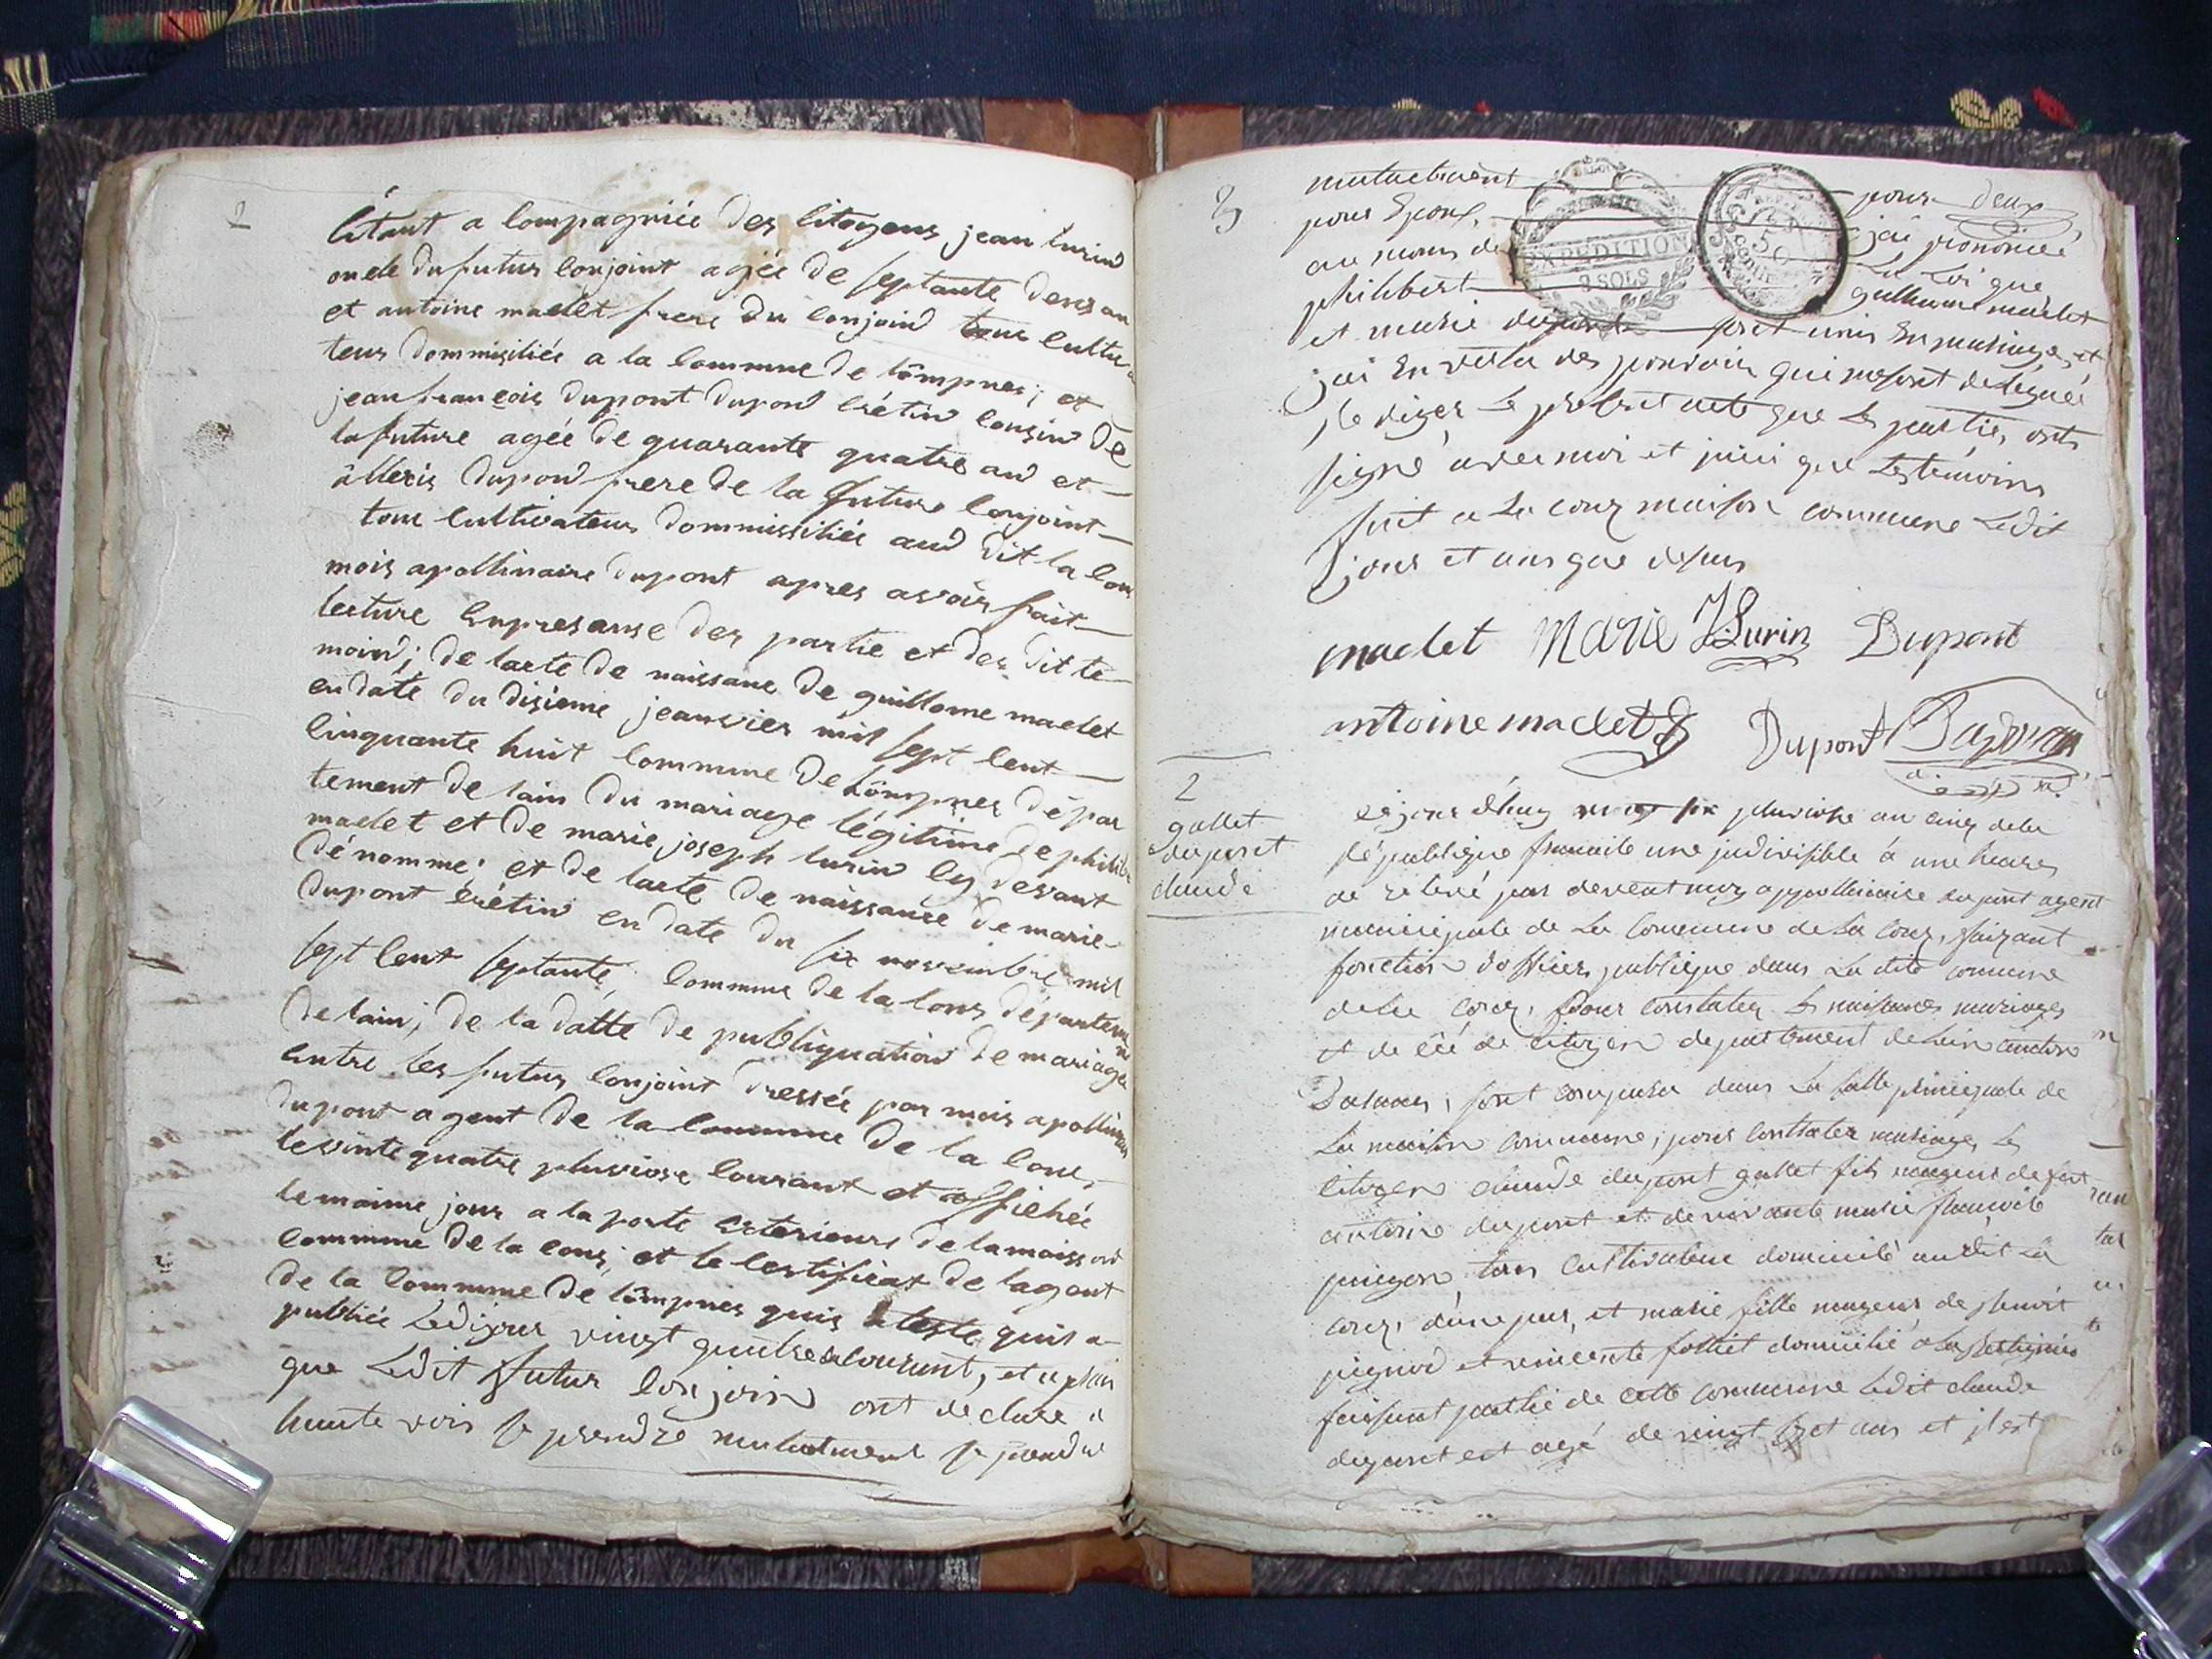 2
Cétant a Compagniée des Citoyens jean lurin
oncle du futur Conjoint agée de septante deux an
et antoine maclet frere du Conjoind tous Cultiva
teur dommisiliée a la Commune de lômpnes; et
jean francois dupont dupond Crétin Cousin de
la future agée de quarante quatre and et
âllexis dupond frere de la future Conjoint
tous Cultivateur dommissiliée aud dit la Cou
mois apollinaire dupont apres avoir fait
lecture Enpresanse des partie et des dit te
moind; de lacte de naissanse de guillome maclet
en date du disieme jeanvier mil sept Cent
Cinquante huit Commune de Lômpnes dépar
tement de lain du mariage légitime de philib
maclet et de marie joseph lurin Cy devant
dénommé; et de lacte de naissance de marie
dupont Crétin en date du six novembre mil
sept Cent septante, Commune de la Cour départem
de lain; de la datte de publiquation de mariage
Entre les futur Conjoint dressée par mois apollinair
dupont agent de la Commune de la Cour,
le vinte quatre pluviose Courant et affichée
le maime jour a la porte Exterieure de la maisson
Commune de la Cour; et le Certificat de lagent
de la Commune de lômpnes quis ateste quis a
publiée Ledi jour vingt quatre du Courant, et aprais
que Ledit futur Conjoin ont declare a
haute voix se prendre mutuelment se prendre
3
mutuelment pour deux
pour Epoux, jai prononcé
au nom de La Loi que
philibert guilliaume maclet
et marie dupont sont unis En mariage, et
jai En vertu des pouvoir qui me sont délégués
rediger Le present acte que Les parties onts
signé avec moi et ainci que Les temoins
fait a La cour maison commune Ledit
jour et ans que desus
maclet Marie J Lurin Dupont
antoine maclet Dupont
EXPEDITION
2 SOLS
2
gallet
dupont
claude
Lejour dhuy pluviose an cinq de la
République francaise une indivisible à une heure
de relevé par devent moy appollinaire dupont agent
municipale de La Commune de La Cour, faizant
fonction dofficier publique dans La dite comune
de La Cour, pour constater Les naissances mariages
et décé de Citoyen departement de Lain canton
, sont comparu dans La salle principale de
La maison commune; pour contracter mariage, Le
citoyen claude dupont gallet fils mageur de feu
antoine dupont et de vivante marie francoise
pingon tous Cultivateur domicilié audit La
Cour, dune par, et marie fille mageur de benoit
pignod et vincente folliet domicilié a
faisant partie de cette commune Ledit claude
dupont est agé de vingt sept ans et il est